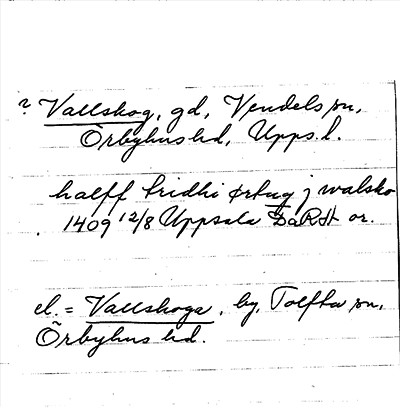 ? Vallskog, gd, Vendels sn,
Örbyhus hd, Upps. l.
halff thridhi ørtug j walsko
1409 12/8 Uppsala DaRSt or.
el. = Vallskoga, by, Tolfta sn,
Örbyhus hd.